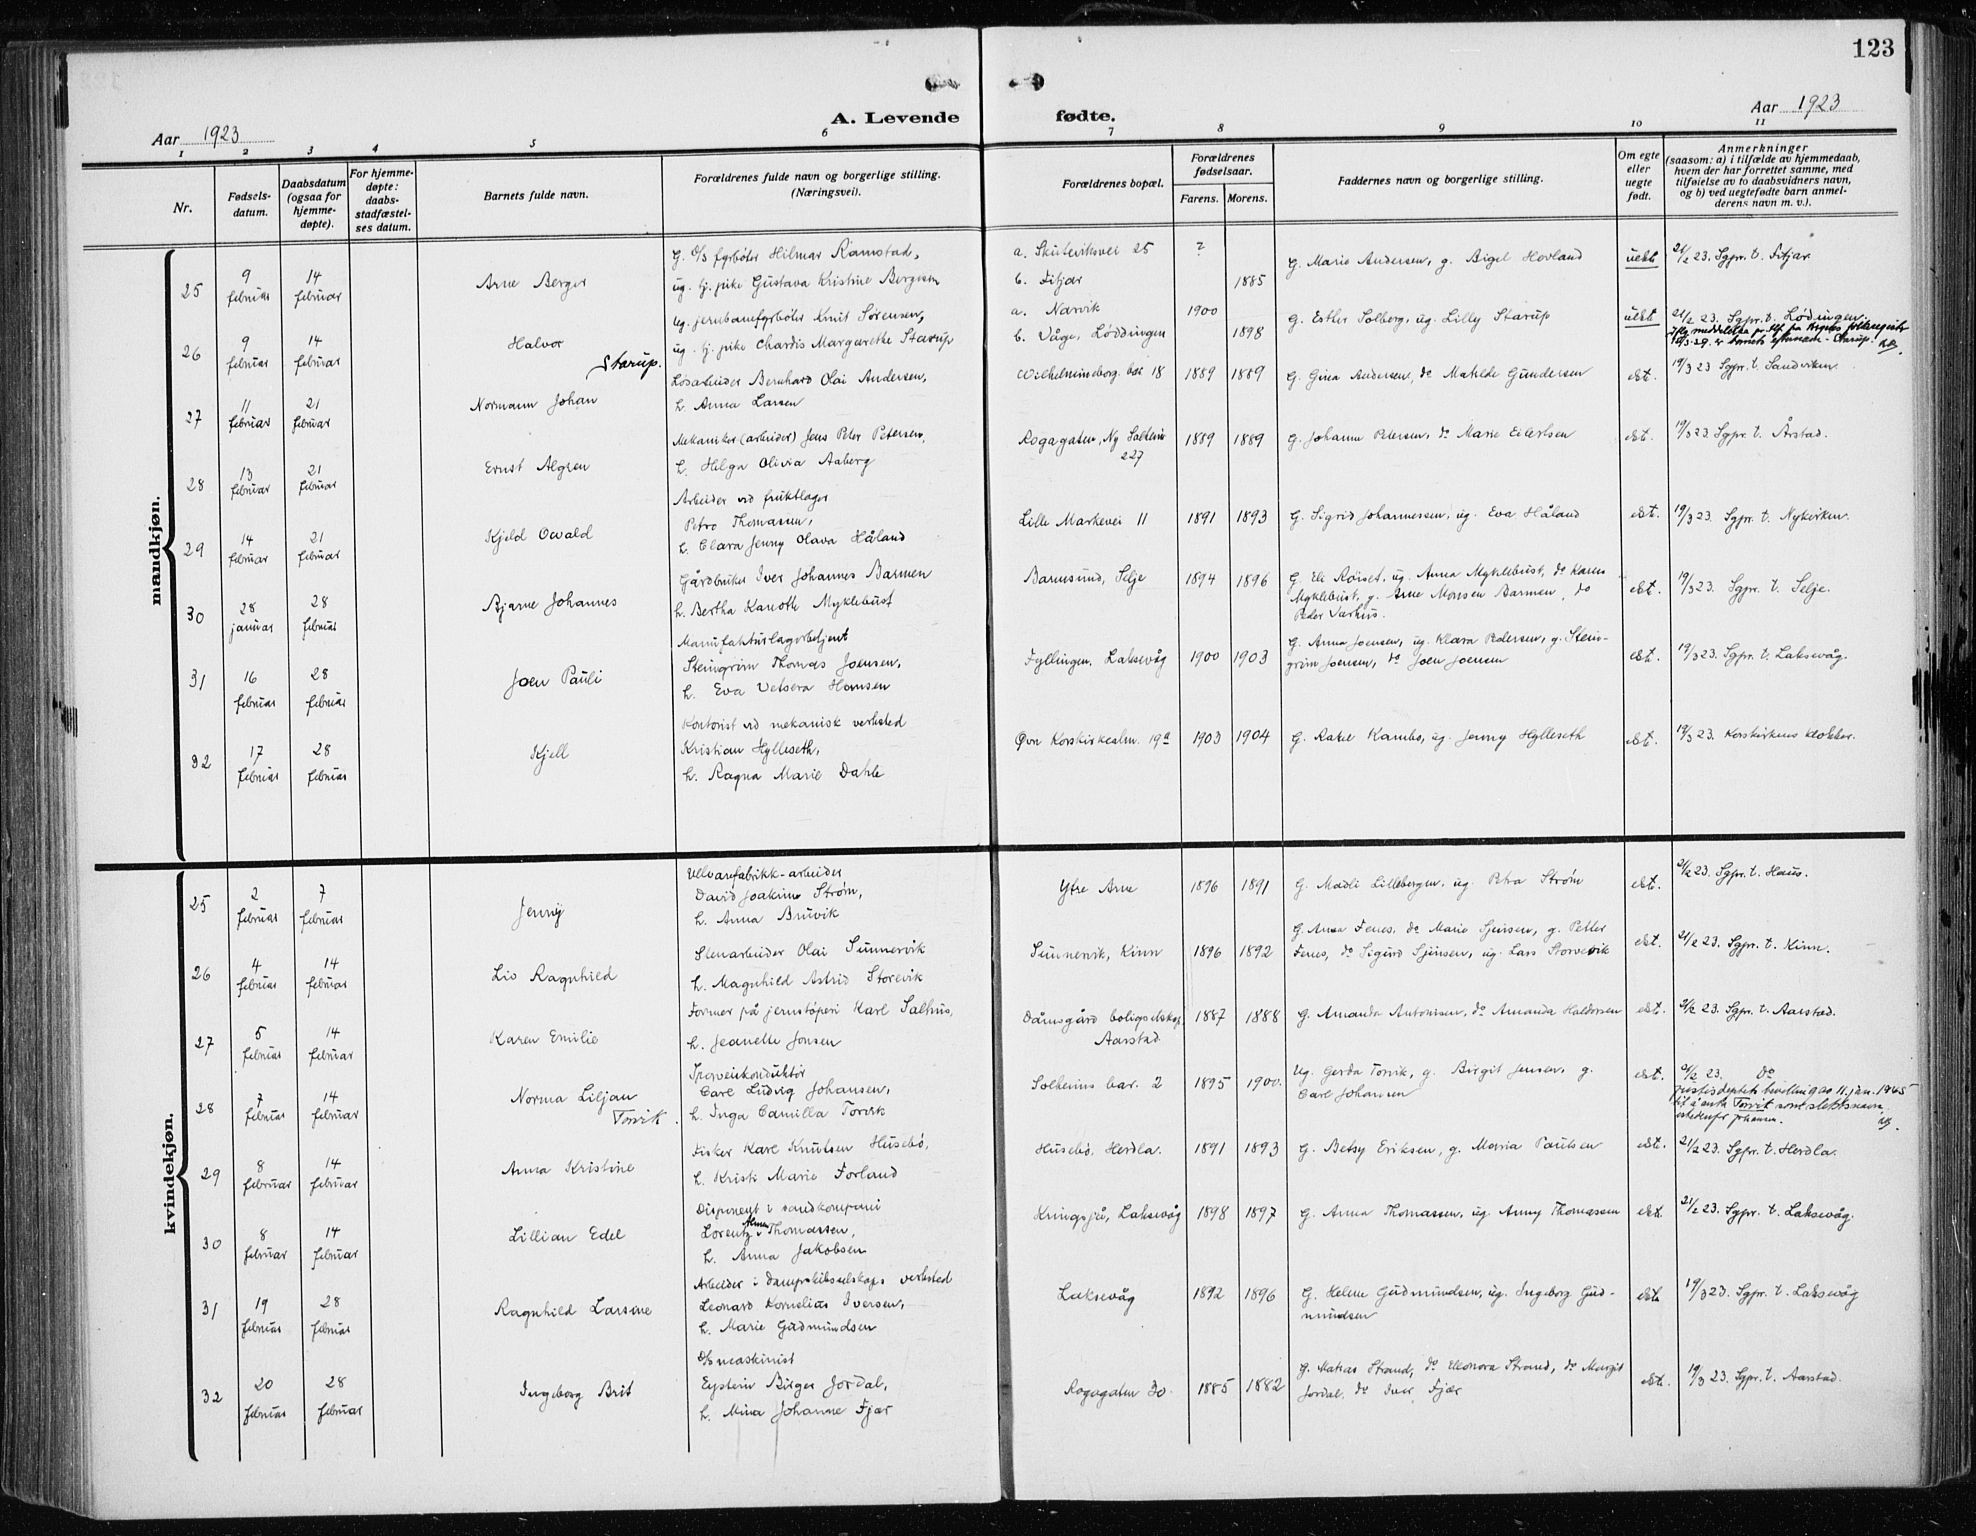 123
Aar 1923
A. Levende
fødte.
Aar 1923
1 2 3 4 5 6 7 8 9 10 11
Nr.
Fødsels-
datum.
Daabsdatum
(ogsaa for
hjemme-
døpte).
For hjemme-
døpte:
daabs-
stadfæstel-
ses datum.
Barnets fulde navn.
Forældrenes fulde navn og borgerlige stilling.
(Næringsvei).
Forældrenes bopæl.
Forældrenes
fødselsaar.
Farens. Morens.
Faddernes navn og borgerlige stilling.
Om egte
eller
uegte
født.
Anmerkninger
(saasom: a) i tilfælde av hjemmedaab,
hvem der har forrettet samme, med
tilføielse av to daabsvidners navn,
og b) ved uegtefødte barn anmel-
derens navn m. v.).
mandkjøn.
25
9
februar
14
februar
Arne Berger
G. D/S fyrbøter Hilmar Ramstad,
ug. tj. pike Gustava Kristine Bergesen
a. Skuteviksvei 25
b. Fitjar
?
1885
G. Marie Andersen, g. Bigel Hovland
uekte
21/2 23. Sgpr. t. Fitjar
26
9
februar
14
februar
Halvor
Starup.
Ug. jernbanefyrbøter Knut Sørensen,
ug. tj. pike Chardis Margarethe Starup
a. Narvik
b. Våge, Løddingen
1900
1898
G. Esther Solberg, ug. Lilly Starup
uekt
21/2 23. Sgpr. t. Lødingen.
27
11
februar
21
februar
Normann Johan
Løsarbeider Bernhard Olai Andersen,
h. Anna Larsen
Wilhelmineborg. bar 18
1889
1889
G. Gina Andersen, do Matilde Gundersen
ekt.
19/3 23 Sgpr. t. Sandviken.
28
13
februar
21
februar
Ernst Algren
Mekaniker (arbeider) Jens Peter Petersen,
h. Helga Olivia Aaberg
Rogagaten, Ny Solheim
227
1889
1889
G. Johanne Petersen, do Marie Eilertsen
ekt.
19/3 23. Sgpr. t. Årstad.
29
14
februar
21
februar
Kjeld Osvald
Arbeider ved fruktlager
Petro Thomassen,
h. Clara Jenny Olava Håland
Lille Markevei 11
1891
1893
G. Sigrid Johannessen, ug. Eva Håland
ekt.
19/3 23. Sgpr. t. Nykirken.
30
28
januar
28
februar
Bjarne Johannes
Gårdbruker Iver Johannes Barmen
h. Bertha Kanoth Myklebust
Barmsund, Selje
1894
1896
G. Eli Røiset, ug. Anna Myklebust, do Karen
Myklebust, g. Arne Monsen Barmen, do
Peder Varhus.
ekt.
19/3 23. Sgpr. t. Selje.
31
16
februar
28
februar
Joen Pauli
Manufakturlagerbetjent
Steingrim Thomas Joensen,
h. Eva Vetsera Hansen
Fyllingen, Laksevåg
1900
1903
G. Anna Joensen, ug. Klara Pedersen, g. Stein-
grim Joensen, do Joen Joensen
ekt.
19/3 23. Sgpr. t. Laksevåg.
32
17
februar
28
februar
Kjell
Kontorist ved mekanisk verksted
Kristian Hylleseth,
h. Ragna Marie Dahle
Øvr Korskirkealm. 19a
1903
1904
G. Rakel Kambo, ug. Jenny Hylleseth
ekt.
19/3 23. Korskirkens klokker.
kvindekjøn.
25
2
februar
7
februar
Jenny
Ullvarefabrikk-arbeider
David Joakim Strøm,
h. Anna Bruvik
Ytre Arne
1896
1891
G. Madli Lillebergen, ug. Petra Strøm
ekt.
21/2 23. Sgpr. t. Haus.
26
4
februar
14
februar
Liv Ragnhild
Stenarbeider Olai Sunnervik
h. Magnhild Astrid Storevik
Sunnervik, Kinn
1896
1892
G. Anna Fenes, do Marie Sjursen, g. Petter
Fenes, do Sigurd Sjursen, ug. Lars Storevik
ekt.
21/2 23. Sgpr. t. Kinn.
27
5
februar
14
februar
Karen Emilie
Former på jernstøperi Karl Salhus,
h. Jeanette Jonsen
Dåmsgård boligselskap,
Aarstad.
1887
1888
G. Amanda Antonisen, do Amanda Haldorsen
ekt.
21/2 23. Sgpr. t. Aarstad.
28
7
februar
14
februar
Norma Liljan
Torvik.
Sporveiskonduktør
Carl Ludvig Johansen,
h. Inga Camilla Torvik
Solheims bar. 2
1895
1900.
Ug. Gerda Torvik, g. Birgit Jensen, g.
Carl Johansen
ekt.
21/2 23. Do
justisdeptets bevilling av 11. jan. 1945
til å anta Torvik som slektsnavn
istedenfor Johansen.
29
8
februar
14
februar
Anna Kristine
Fisker Karl Knutsen Husebø,
h. Kristi Marie Forland
Husebø, Herdla.
1891
1893
G. Betsy Eriksen, g. Maria Paulsen
ekt.
21/2 23. Sgpr. t. Herdla.
30
8
februar
14
februar
Lillian Edel
Disponent i sandkompani
Lorentz Thomassen,
h. Anna Jakobsen
Kringsjå, Laksevåg
1898
1897
G. Anna Thomassen, ug. Anny Thomassen
ekt.
21/2 23. Sgpr. t. Laksevåg.
31
19
februar
28
februar
Ragnhild Larsine
Arbeider i dampskibsselskaps verksted
Leonard Kornelius Iversen,
h. Marie Gudmundsen
Laksevåg
1892
1896
G. Helene Gudmundsen, ug. Ingeborg Gud-
mundsen
ekt.
19/3 23. Sgpr. t. Laksevåg
32
20
februar
28
februar
Ingeborg Brit
D/S maskinist
Eystein Birger Jordal,
h. Mina Johanne Fjær
Rogagaten 30.
1885
1882
G. Matias Strand, do Eleonora Strand, do Margit
Jordal, do Iver Fjær
ekt.
19/3 23. Sgpr. t. Aarstad.